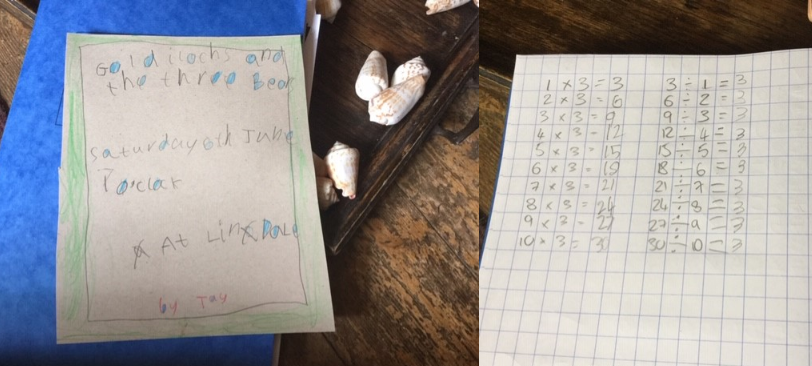 Goldilocks and
the three Bear
Saturday 6th June
7 o'clock
At
by Jay
1 x 3 = 3
2 x 3 = 6
3 x 3 = 9
4 x 3 = 12
5 x 3 = 15
6 x 3 = 18
7 x 3 = 21
8 x 3 = 24
9 x 3 = 27
10 x 3 = 3
3 ÷ 1 = 3
6 ÷ 2 = 3
9 ÷ 3 = 3
12 ÷ 4 = 3
15 ÷ 5 = 3
18 ÷ 6 = 3
21 ÷ 7 = 3
24 ÷ 8 = 3
27 ÷ 9 = 3
30 ÷ 10 = 3